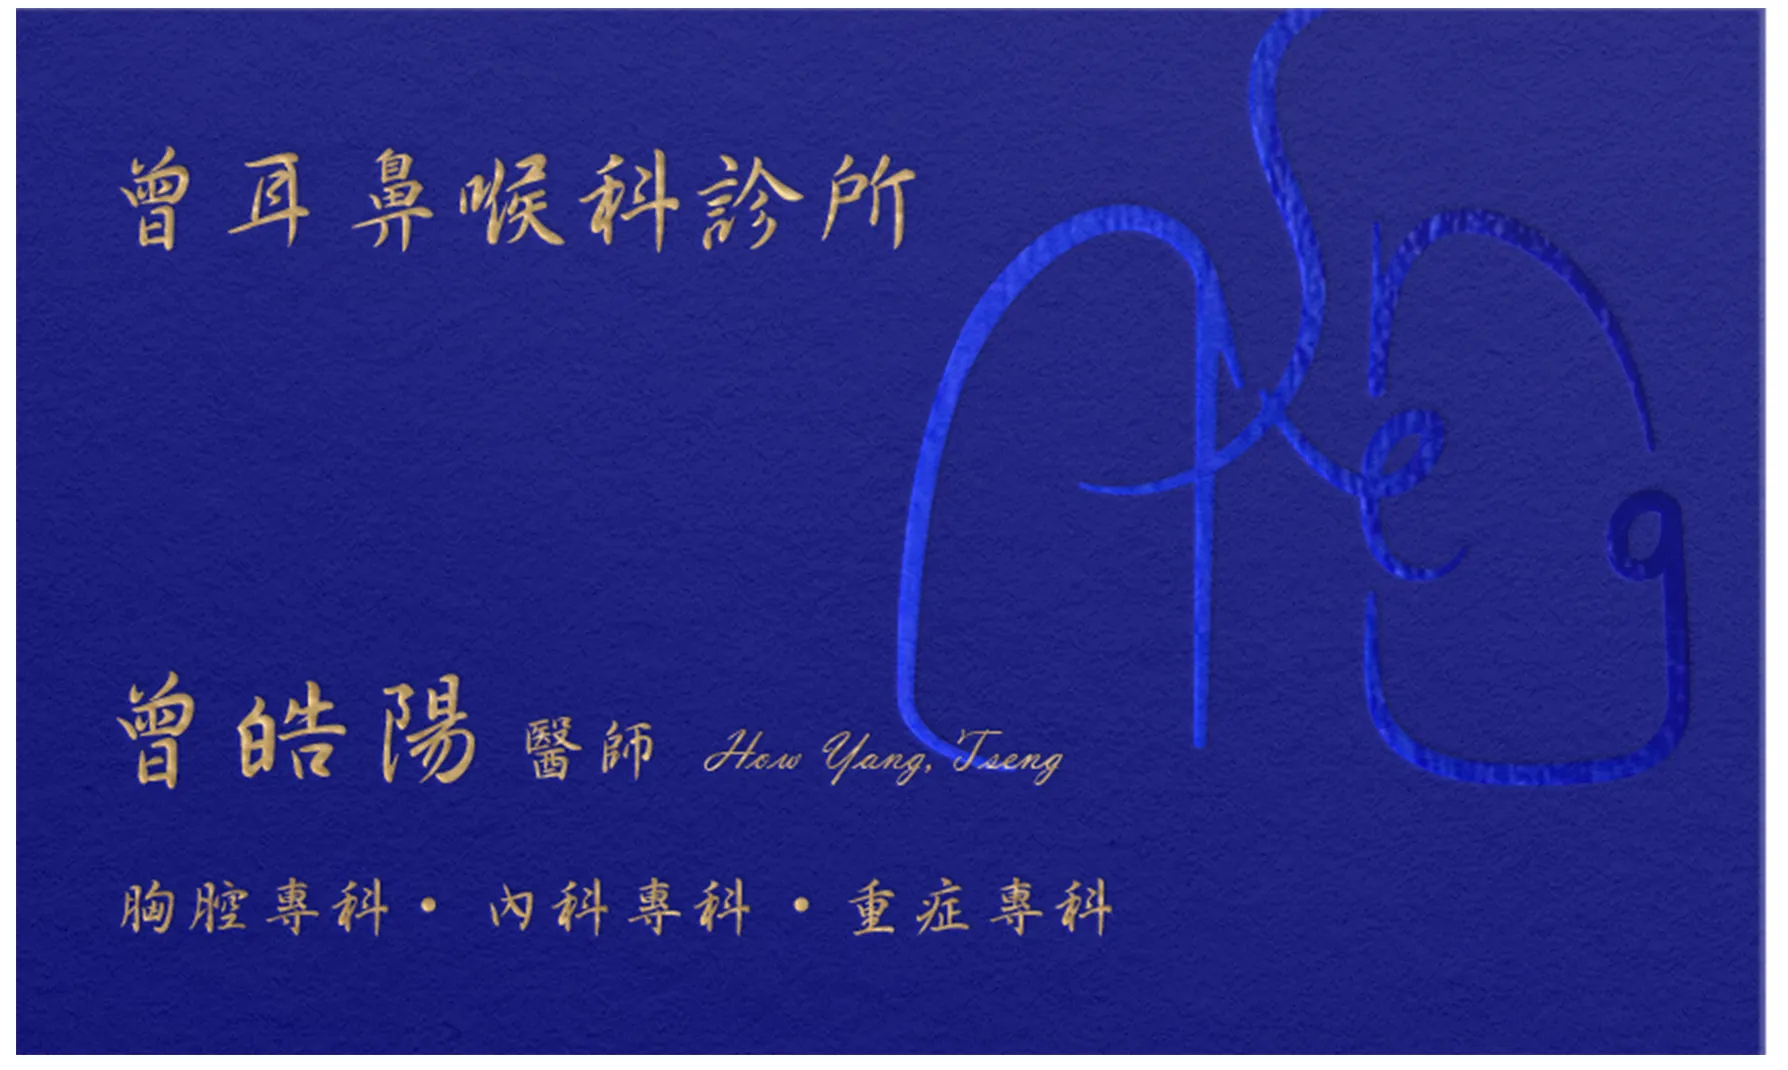 曾耳鼻喉科診所
曾皓陽 醫師 How Yang, Tseng
胸腔專科・內科專科・重症專科